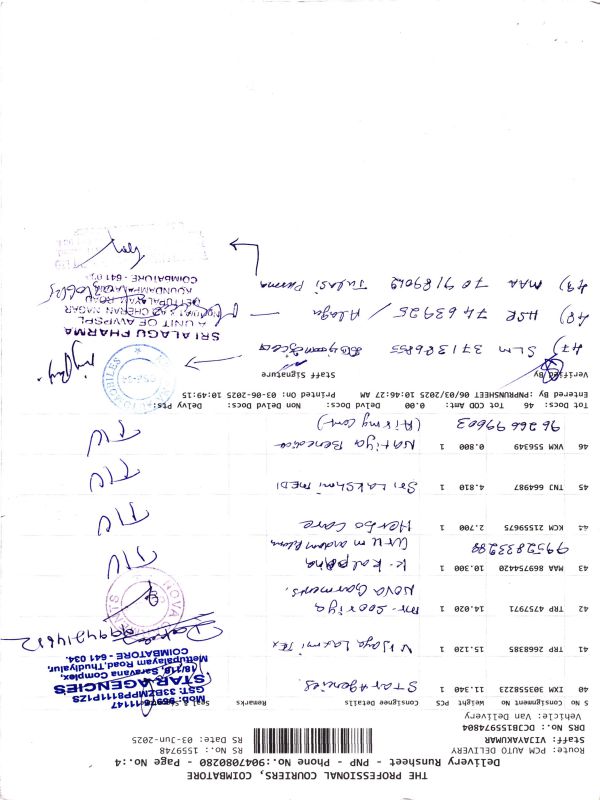 THE PROFESSIONAL COURIERS, COIMBATORE
Delivery Runsheet - PNP - Phone No.:9047080280 - Page No.:4
Route: PCM AUTO DELIVERY
RS No.: 1559748
Staff: VIJAYAKUMAR
RS Date: 03-Jun-2025
DRS No: DC3B1559974804
Vehicle: Van Delivery
S No Consignment No Weight PCS Consignee Details Remarks Seal &
40 IXM 303558223 11.340 1 Star Agencies.
Mob: 95976 11147
GST: 33BZMPP8111P1ZS
STAR AGENCIES
18/119, Saravana Complex,
Mettupalayam Road, Thudiyalur,
COIMBATORE - 641 034.
41 TRP 2668385 15.120 1 Vijaya Laxmi Tex
42 TRP 4757971 14.020 1 Mr. Sooriya
NOVA Garments.
NOVA GARMENTS
43 MAA 869754420 10.300 1 K. Kalpana
9952833288
44 KCM 21559675 2.700 1 Herbo Care
45 TNJ 664987 4.810 1 Sri Lakshmi MEDI
46 VKM 556349 0.800 1 Natiya Benedict
96266 99603
Tot Docs: 46 Tot COD Amt: 0.00 Delvd Docs: Non Delvd Docs: Delvy Pts:
Entered By :PNPRUNSHEET 06/03/2025 10:46:27 AM Printed On: 03-06-2025 10:49:15
Verified By
Staff Signature
47) SLM 371386855
48) HSR 7463925 / Alaga
SRI ALAGU PHARMA
A UNIT OF AWPSPL
CHERAN NAGAR
METTUPALAYAM ROAD
KOUNDAMPALAYAM
COIMBATORE - 641
49) MAA 709189019 Tulasi Parma